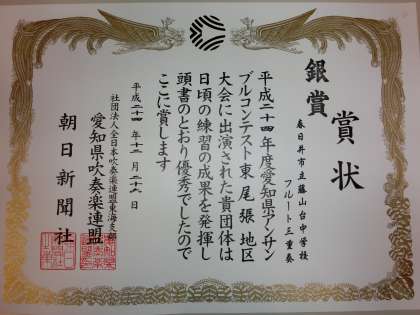 賞状
銀賞
春日井市立藤山台中学校
フルート三重奏
平成二十四年度愛知県アンサン
ブルコンテスト東尾張地区
大会に出演された貴団体は
日頃の練習の成果を発揮し
頭書のとおり優秀でしたので
ここに賞します
平成二十四年十二月二十六日
社団法人全日本吹奏楽連盟東海支部
愛知県吹奏楽連盟
朝日新聞社